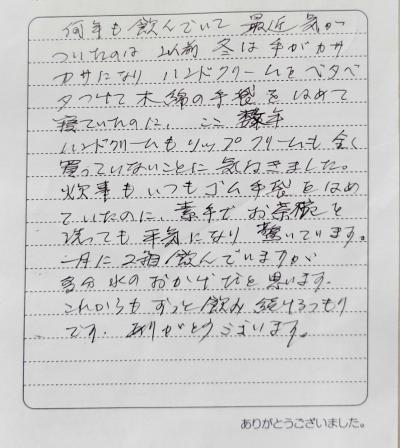 何年も飲んでいて 最近気が
ついたのは 以前 冬は手がカサ
カサになり ハンドクリームをベタベ
タつけて木綿の手袋をはめて
寝ていたのに、ここ 数年
ハンドクリームもリップクリームも全く
買っていないことに気ずきました。
炊事もいつもゴム手袋をはめ
ていたのに、素手でお茶碗を
洗っても平気になり 驚いています。
一月に2箱飲んでいますが
多分 水のおかげだと思います。
これからもずっと飲み続けるつもり
です。ありがとうございます。
ありがとうございました。